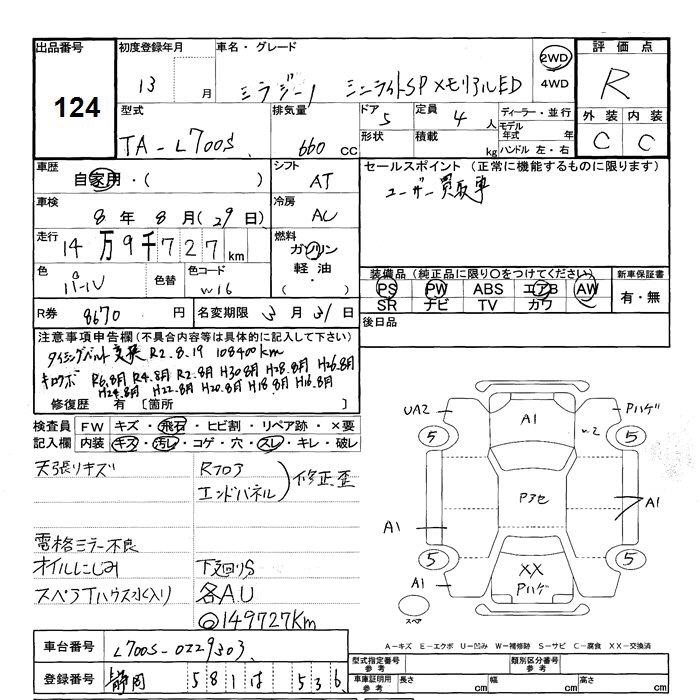 出品番号
124
初度登録年月
13 月
車名・グレード
ミラジーノ ミニライトSP メモリアルED
2WD
4WD
評価点
R
外装 内装
C C
型式
TA-L700S
排気量
660 cc
ドア
5
定員
4 人
形状
積載
kg
ディーラー・並行
モデル年式 年
ハンドル 左・右
車歴
自家用・( )
シフト
AT
セールスポイント (正常に機能するものに限ります)
ユーザー買取車
車検
8 年 8 月 (29 日)
冷房
AC
走行
14万9千727km
燃料
ガソリン
軽油
・
( )
色
パール
色替
色コード
W16
装備品 (純正品に限り〇をつけてください)
PS PW ABS エアB AW
SR ナビ TV カワ
新車保証書
有・無
R券
8670 円
名変期限
3 月 31 日
後日品
注意事項申告欄(不具合内容等は具体的に記入して下さい)
タイミングベルト交換 R2.8.19 108400km
キロクボ R6.8月 R4.8月 R2.8月 H30.8月 H28.8月 H26.8月
H24.8月 H22.8月 H20.8月 H18.8月 H16.8月
修復歴 有 [箇所
検査員記入欄
FW キズ・飛石・ヒビ割・リペア跡・×要
内装 キズ・汚れ・コゲ・穴・スレ・キレ・破レ
天張りキズ
Rフロア
エンドパネル
修正歪
電格ミラー不良
オイルにじみ
下廻りS
スペアTハウス水入り
各A.U
149727Km
UA2
A1
Pハゲ
W2
5
5
Pアセ
A1
A1
5
5
XX
Pハゲ
A1
スペア
A-キズ E-エクボ U-凹み W-補修跡 S-サビ C-腐食 XX-交換済
車台番号
L700S-0229303
型式指定番号
参考
類別区分番号
参考
登録番号
静岡 581 は 536
車庫証明用
参考
長さ cm
幅 cm
高さ cm